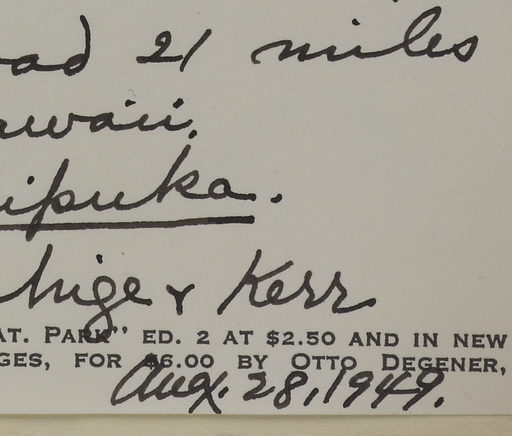 oad 21 miles
awaii.
ipuka.
hige & Kerr
AT. PARK" ED. 2 AT $2.50 AND IN NEW
GES, FOR $6.00 BY OTTO DEGENER,
Aug. 28, 1949.